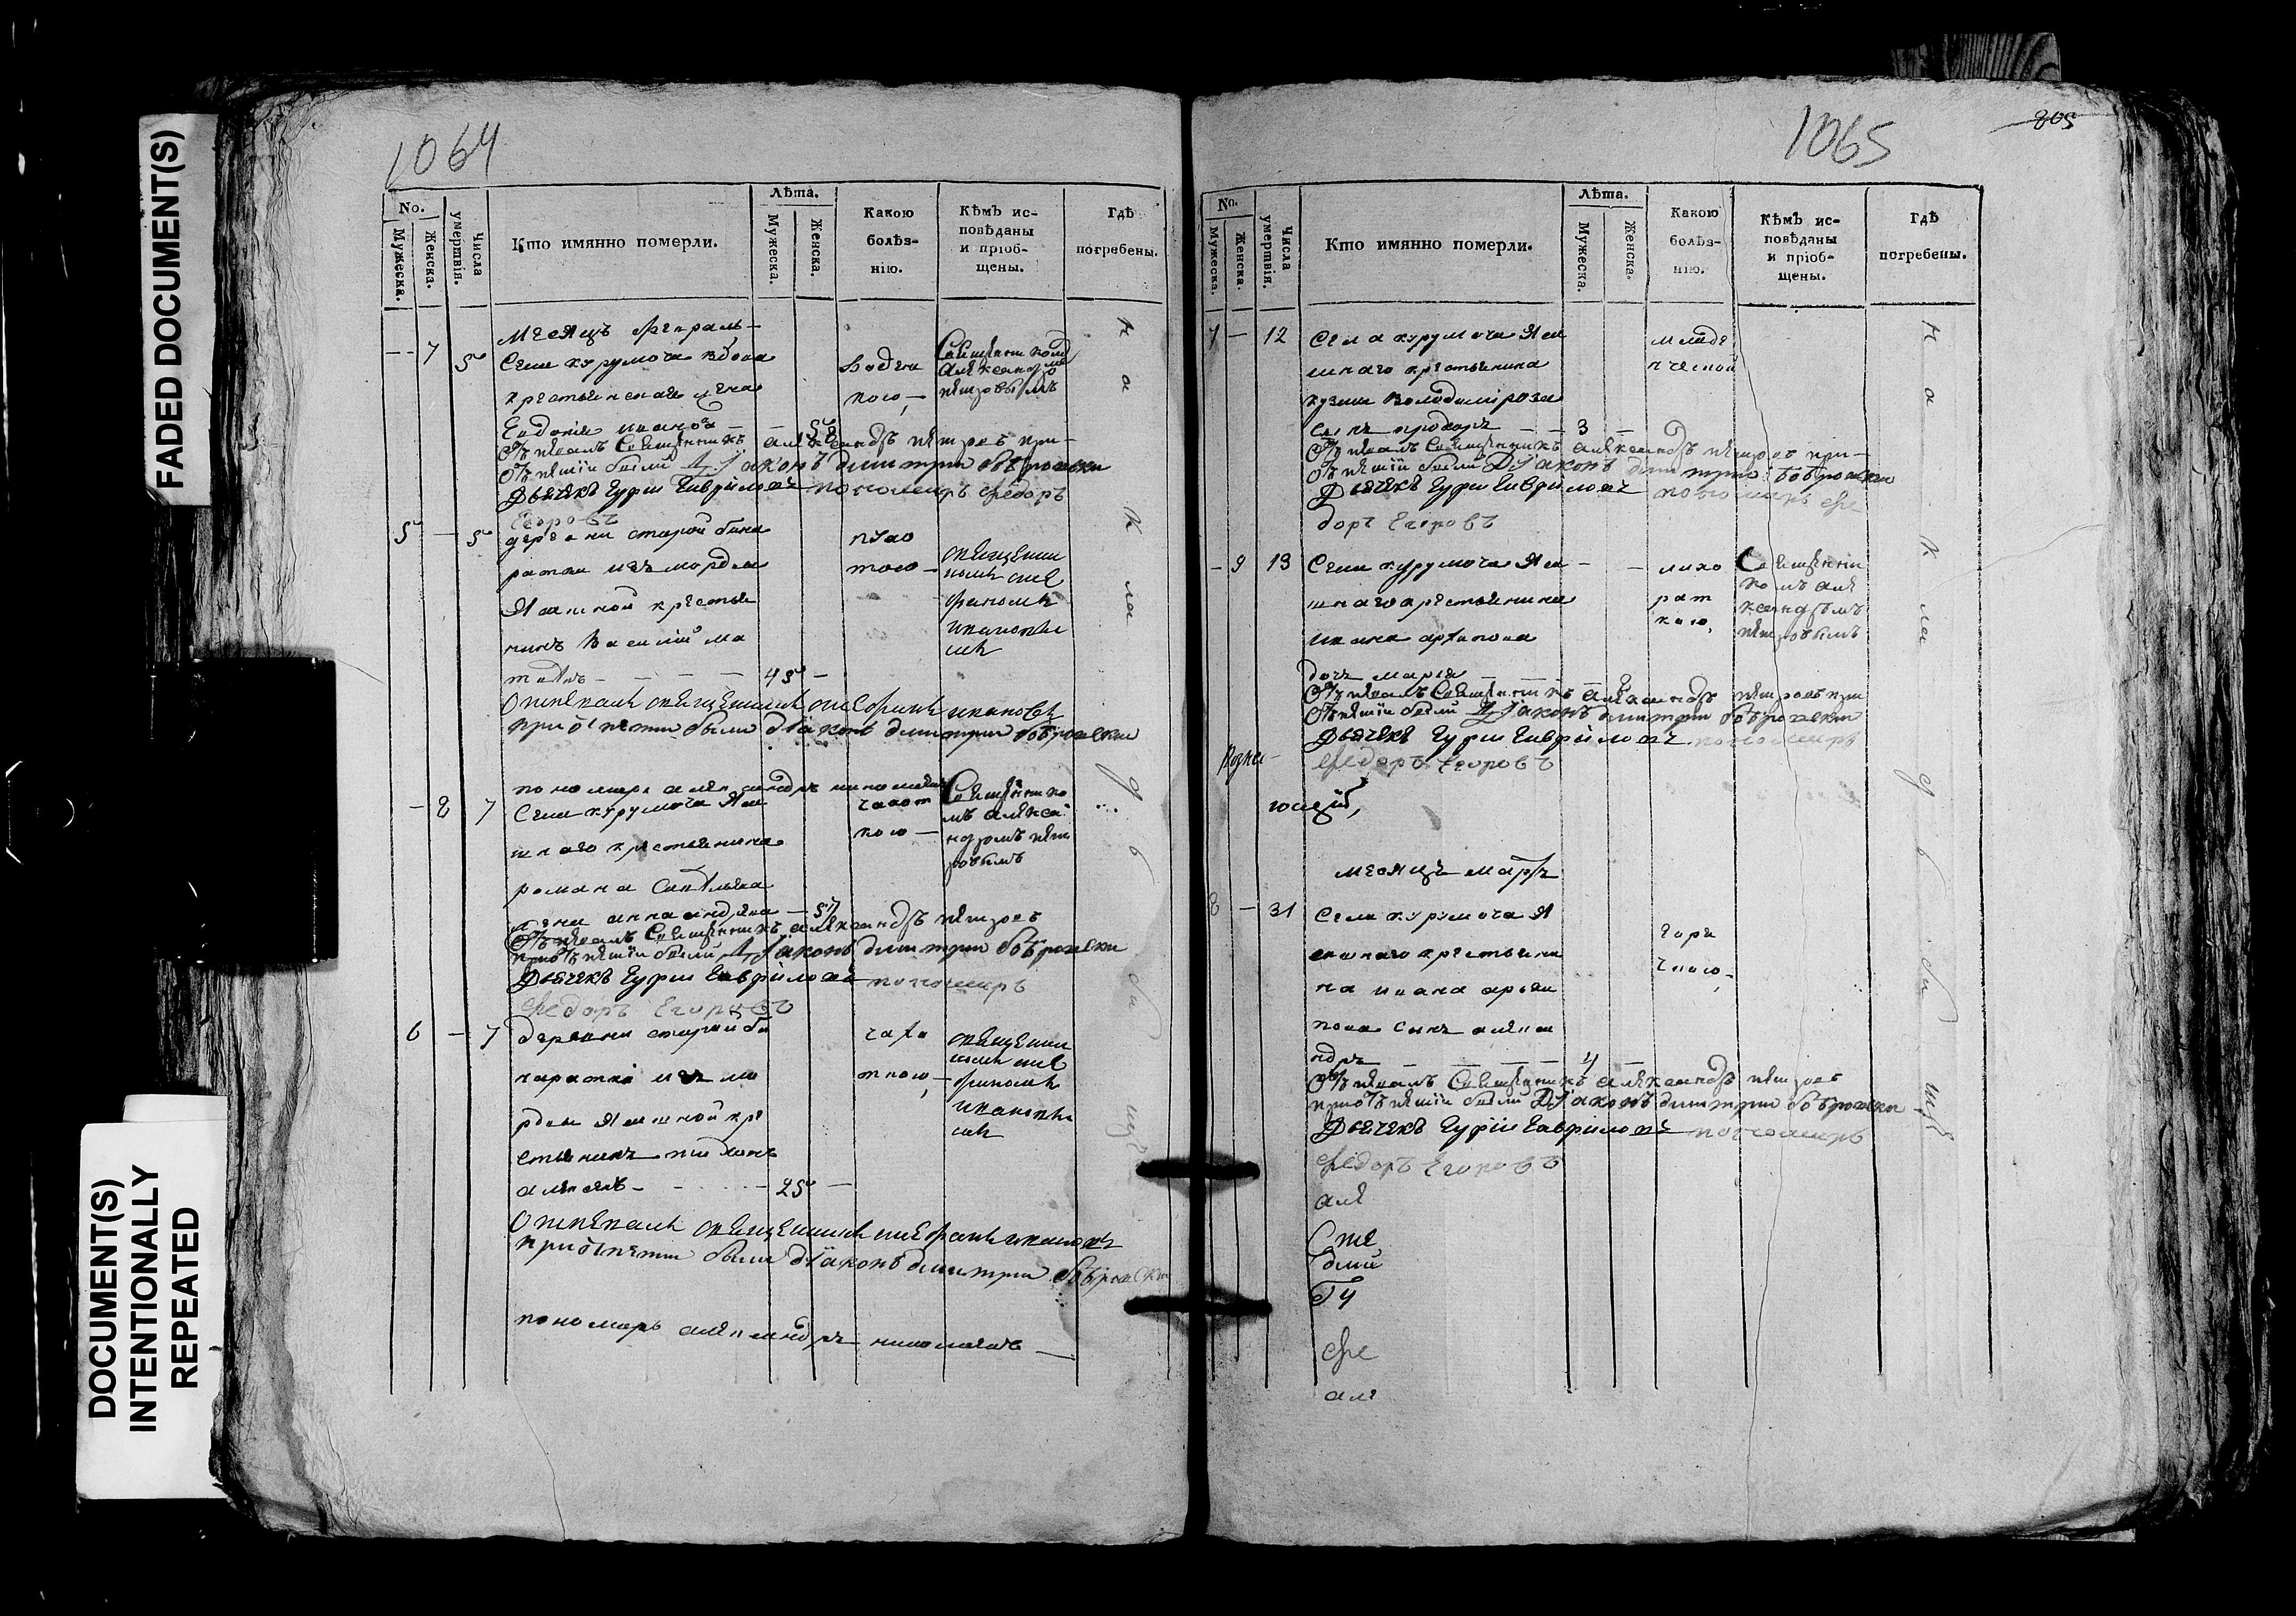 FADED DOCUMENT(S)
DOCUMENT(S)
INTENTIONALLY
REPEATED
1064
No.
Мужеска.
Женска.
Числа
умертвія.
Кто имянно померли.
Лѣта.
Мужеска.
Женска.
Какою
болѣз-
нію.
Кѣмъ ис-
повѣданы
и пріоб-
щены.
Гдѣ
погребены.
месяцъ февраль
7 5 Села курумоча вдова
крестьянская жена
Евдокия иванова 58
водяною
Священникомъ
александромъ
петровымъ
Отпевалъ Священникъ александръ петровъ при
отпетии были Дїаконъ димитрий бобровски
Дьячекъ Гурий Гавриловъ пономарь Федоръ
Егоровъ
5 5 деревни старой бина
ратки изъ мордвы
Ясашной крестья
нинъ Василий ма
45
священни
комъ сте
фаномъ
ивановы
мъ
Отпевалъ священникъ стефанъ ивановъ
при отпетии были дїаконъ димитрий бобровски
пономарь александръ николаевъ
8 7 Села курумоча Яса
шнаго крестьянина
романа Савельева
жена анна андреева 57
чахот
кою
Священнико
мъ алекса
ндромъ пет
ровымъ
Отпевалъ Священникъ александръ петровъ
при отпетии были Дїаконъ димитрий бобровски
Дьячекъ Гурий Гавриловъ пономарь
Федоръ Егоровъ
6 7 деревни старой би
наратки изъ мо
рдвы Ясашной кре
стьянинъ
25
чахо
ткою
священни
комъ сте
фаномъ
ивановы
мъ
Отпевалъ священникъ стефанъ ивановъ
при отпетии были дїаконъ димитрий бобровски
пономарь александръ николаевъ
на кладбищѣ
1065
805
No.
Мужеска.
Женска.
Числа
умертвія.
Кто имянно померли.
Лѣта.
Мужеска.
Женска.
Какою
болѣз-
нію.
Кѣмъ ис-
повѣданы
и пріоб-
щены.
Гдѣ
погребены.
7 12 Села курумоча Яса
шнаго крестьянина
кузмы Володимірова
сынъ прохоръ 3
младе
нческой
Отпевалъ Священникъ александръ петровъ при
отпетии были Дїаконъ димитрий бобровски
Дьячекъ Гурий Гавриловъ пономарь Фе
доръ Егоровъ
9 13 Села курумоча Яса
шнаго крестьянина
ивана архипова
дочь мария
лихо
рат
кою
Священни
комъ але
ксандромъ
петровымъ
Отпевалъ Священникъ александръ петровъ при
отпетии были Дїаконъ димитрий бобровски
Дьячекъ Гурий Гавриловъ пономарь
Федоръ Егоровъ
месяцъ мартъ
8 31 Села курумоча Я
сашнаго крестьяни
на ивана
сынъ алекса
ндръ 4
горя
чкою
Отпевалъ Священникъ александръ петровъ
при отпетии были Дїаконъ димитрий бобровски
Дьячекъ Гурий Гавриловъ пономарь
Федоръ Егоровъ
але
Сте
дми
Гу
Фе
але
на кладбищѣ